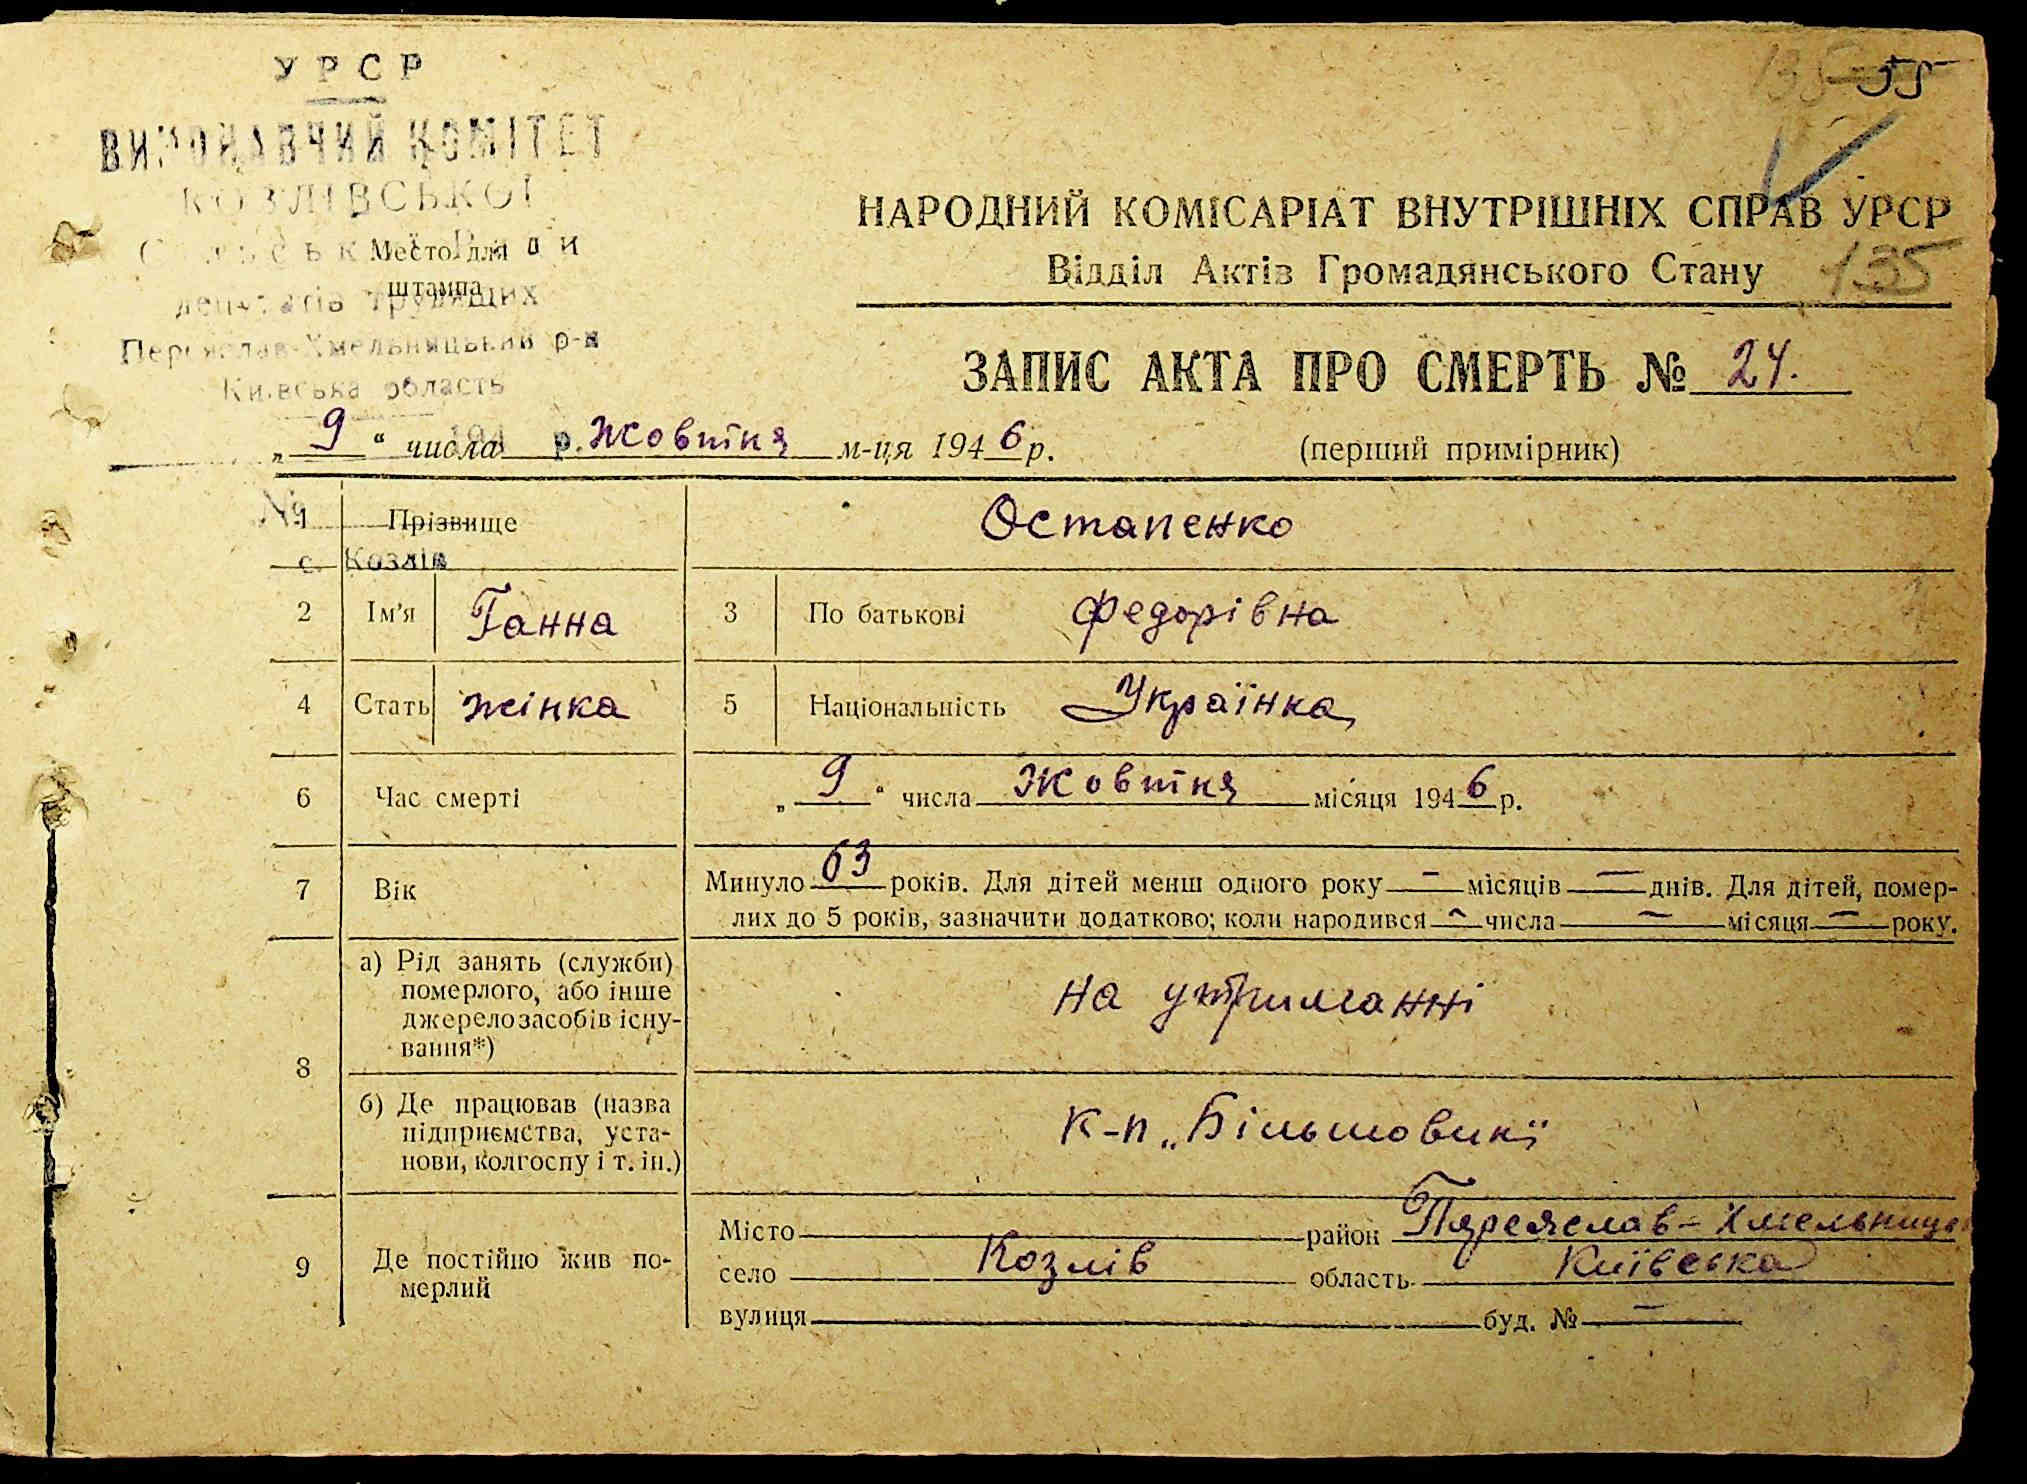 УРСР
135 55
ВИКОНАВЧИЙ КОМІТЕТ
КОЗЛІВСЬКОЇ
Место для
штампа
депутатів трудящих
Переяслав-Хмельницький р-н
Київська область
194 р.
№
с. Козлів
НАРОДНИЙ КОМІСАРІАТ ВНУТРІШНІХ СПРАВ УРСР
Відділ Актів Громадянського Стану 135
ЗАПИС АКТА ПРО СМЕРТЬ № 24.
„ 9 “ числа Жовтня м-ця 1946 р. (перший примірник)
1 Прізвище Остапенко
2 Ім'я Ганна 3 По батькові Федорівна
4 Стать жінка 5 Національність Українка
6 Час смерті „ 9 “ числа Жовтня місяця 1946 р.
7 Вік Минуло 63 років. Для дітей менш одного року — місяців — днів. Для дітей, помер-
лих до 5 років, зазначити додатково; коли народився — числа — місяця — року.
8 а) Рід занять (служби)
померлого, або інше
джерело засобів існу-
вання*)
на утриманні
б) Де працював (назва
підприємства, уста-
нови, колгоспу і т. ін.)
к-п „Більшовик"
9 Де постійно жив по-
мерлий
Місто район Переяслав-Хмельниць
село Козлів область Київська
вулиця буд. № —